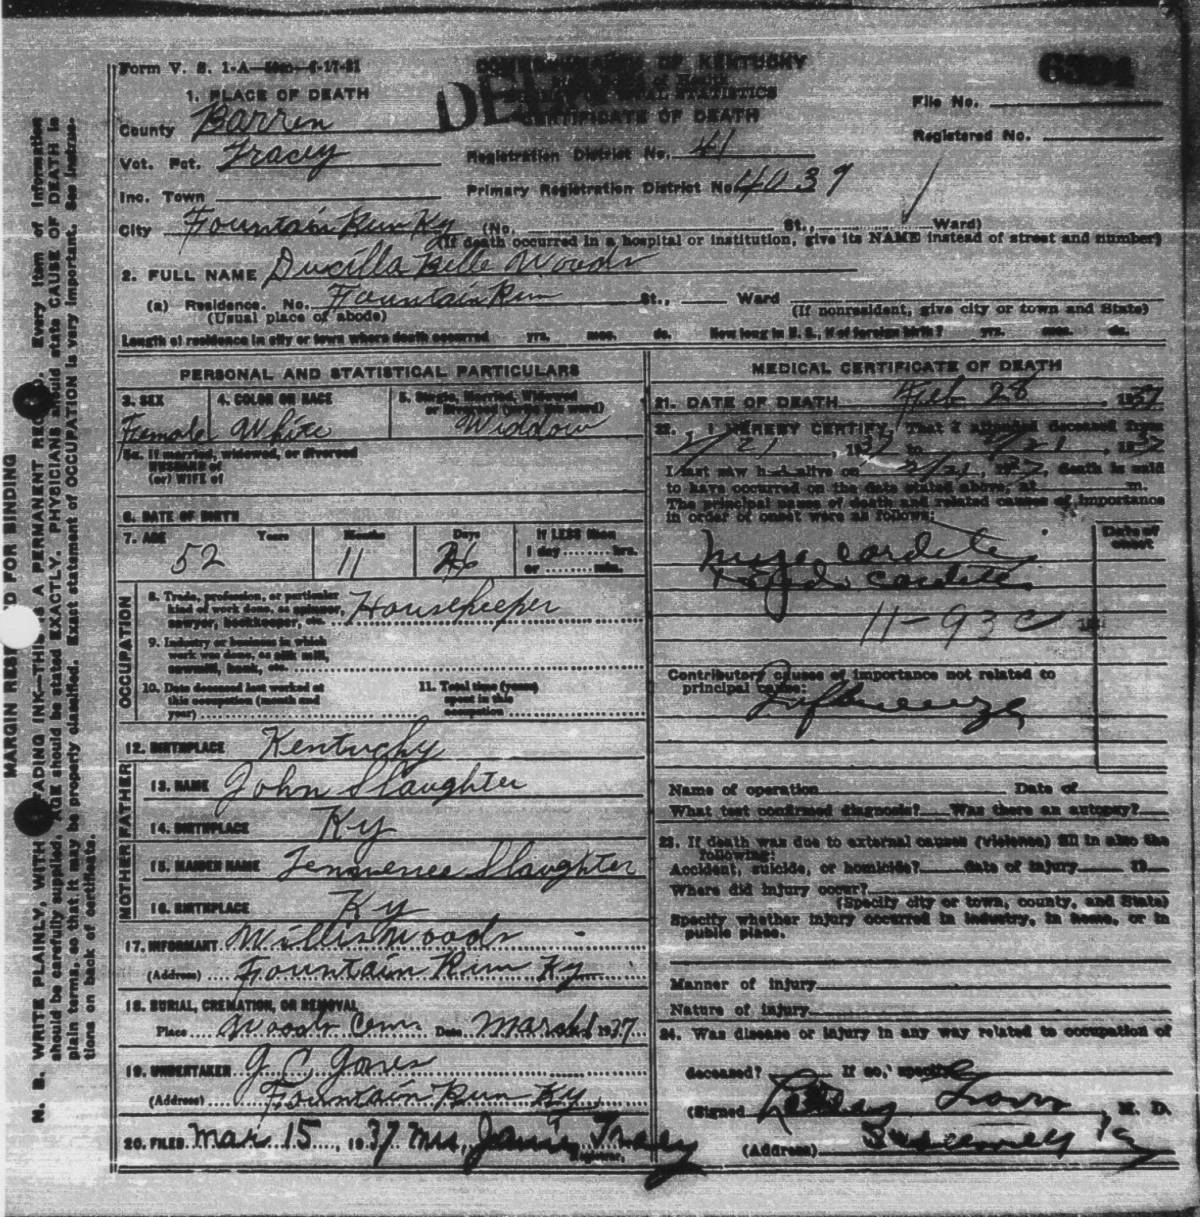 Form V. S. 1-A
COMMONWEALTH OF KENTUCKY
6394
1. PLACE OF DEATH
STATISTICS
CERTIFICATE OF DEATH
File No.
Registered No.
County Barren
Vot. Pct. Tracey
Registration District No. 41
Inc. Town
Primary Registration District No. 4039
City Fountain Run Ky (No. St., Ward)
(If death occurred in a hospital or institution, give its NAME instead of street and number)
2. FULL NAME Ducilla Belle Woods
(a) Residence. No. Fountain Run St., Ward
(Usual place of abode)
(If nonresident, give city or town and State)
Length of residence in city or town where death occurred yrs. mos. ds. How long in U. S., if of foreign birth? yrs. mos. ds.
PERSONAL AND STATISTICAL PARTICULARS
3. SEX Female
4. COLOR OR RACE White
5. Single, Married, Widowed or Divorced (write the word) Widdow
5a. If married, widowed, or divorced
HUSBAND of
(or) WIFE of
6. DATE OF BIRTH
7. AGE 52 Years 11 Months Days If LESS than
1 day hrs.
or min.
OCCUPATION
8. Trade, profession, or particular
kind of work done, as spinner,
sawyer, bookkeeper, etc. Housekeeper
9. Industry or business in which
work was done, as silk mill,
sawmill, bank, etc.
10. Date deceased last worked at
this occupation (month and
year)
11. Total time (years)
spent in this
occupation
12. BIRTHPLACE Kentucky
FATHER
13. NAME John Slaughter
14. BIRTHPLACE Ky
MOTHER
15. MAIDEN NAME Slaughter
16. BIRTHPLACE Ky
17. INFORMANT Willis Woods
(Address) Fountain Run Ky
18. BURIAL, CREMATION, OR REMOVAL
Place Woods Cem. Date March 1 1937
19. UNDERTAKER G C Jones
(Address) Fountain Run Ky
20. FILED Mar 15, 1937 Mrs. Tracey
Registrar.
MEDICAL CERTIFICATE OF DEATH
21. DATE OF DEATH Feb 28, 1937
22. I HEREBY CERTIFY, That I attended deceased from
21, 1937 to 2/21, 1937
I last saw h alive on 2/21, 1937, death is said
to have occurred on the date stated above, at m.
The principal cause of death and related causes of importance
in order of onset were as follows:
Date of
onset
11-93c
Contributory causes of importance not related to
principal cause:
Influenza
Name of operation Date of
What test confirmed diagnosis? Was there an autopsy?
23. If death was due to external causes (violence) fill in also the
following:
Accident, suicide, or homicide? date of injury 19
Where did injury occur?
(Specify city or town, county, and State)
Specify whether injury occurred in industry, in home, or in
public place.
Manner of injury
Nature of injury
24. Was disease or injury in any way related to occupation of
deceased? If so, specify
(Signed , M. D.
(Address)
MARGIN RESERVED FOR BINDING
N. B. WRITE PLAINLY, WITH UNFADING INK—THIS IS A PERMANENT RECORD. Every item of information
should be carefully supplied. AGE should be stated EXACTLY. PHYSICIANS should state CAUSE OF DEATH in
plain terms, so that it may be properly classified. Exact statement of OCCUPATION is very important. See instruc-
tions on back of certificate.